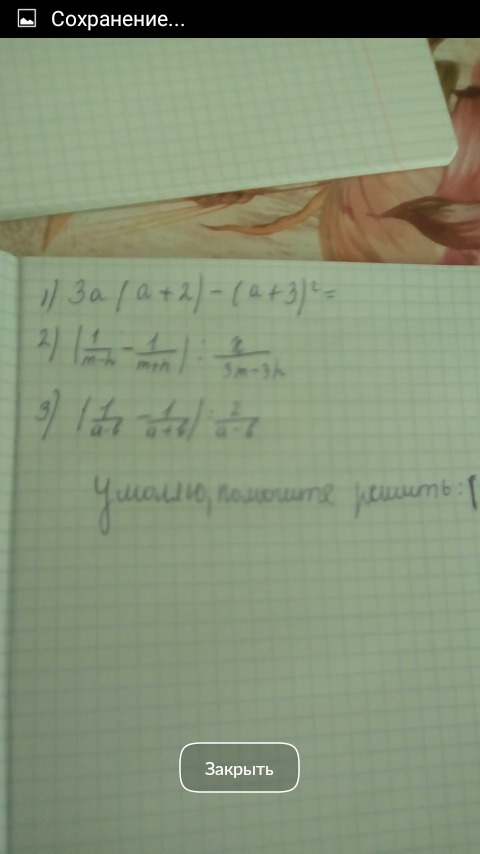 Сохранение...
1) 3a (a+2) - (a+3)² =
2) (1/m-n - 1/m+n) : 2/3m-3n
3) (1/a-b - 1/a+b) : 2/a-b
Умоляю, помогите решить :(
Закрыть